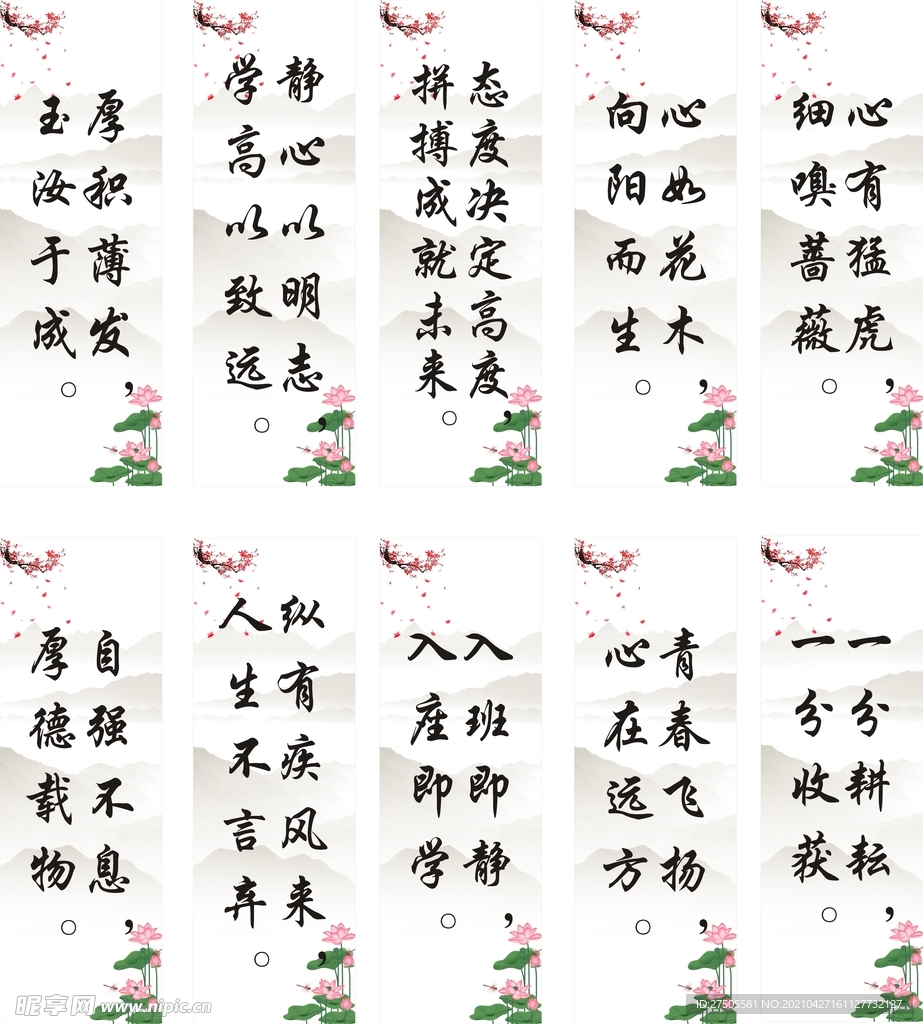 厚积薄发,
玉汝于成。
静心以明志,
学高以致远。
态度决定高度,
拼搏成就未来。
心如花木,
向阳而生。
心有猛虎,
细嗅蔷薇
自强不息,
厚德载物。
纵有疾风来,
人生不言弃。
入班即静,
入座即学。
青春飞扬,
心在远方。
一分耕耘,
一分收获。
昵享网 www.nipic.cn
ID:27505581 NO:20210427161127732127